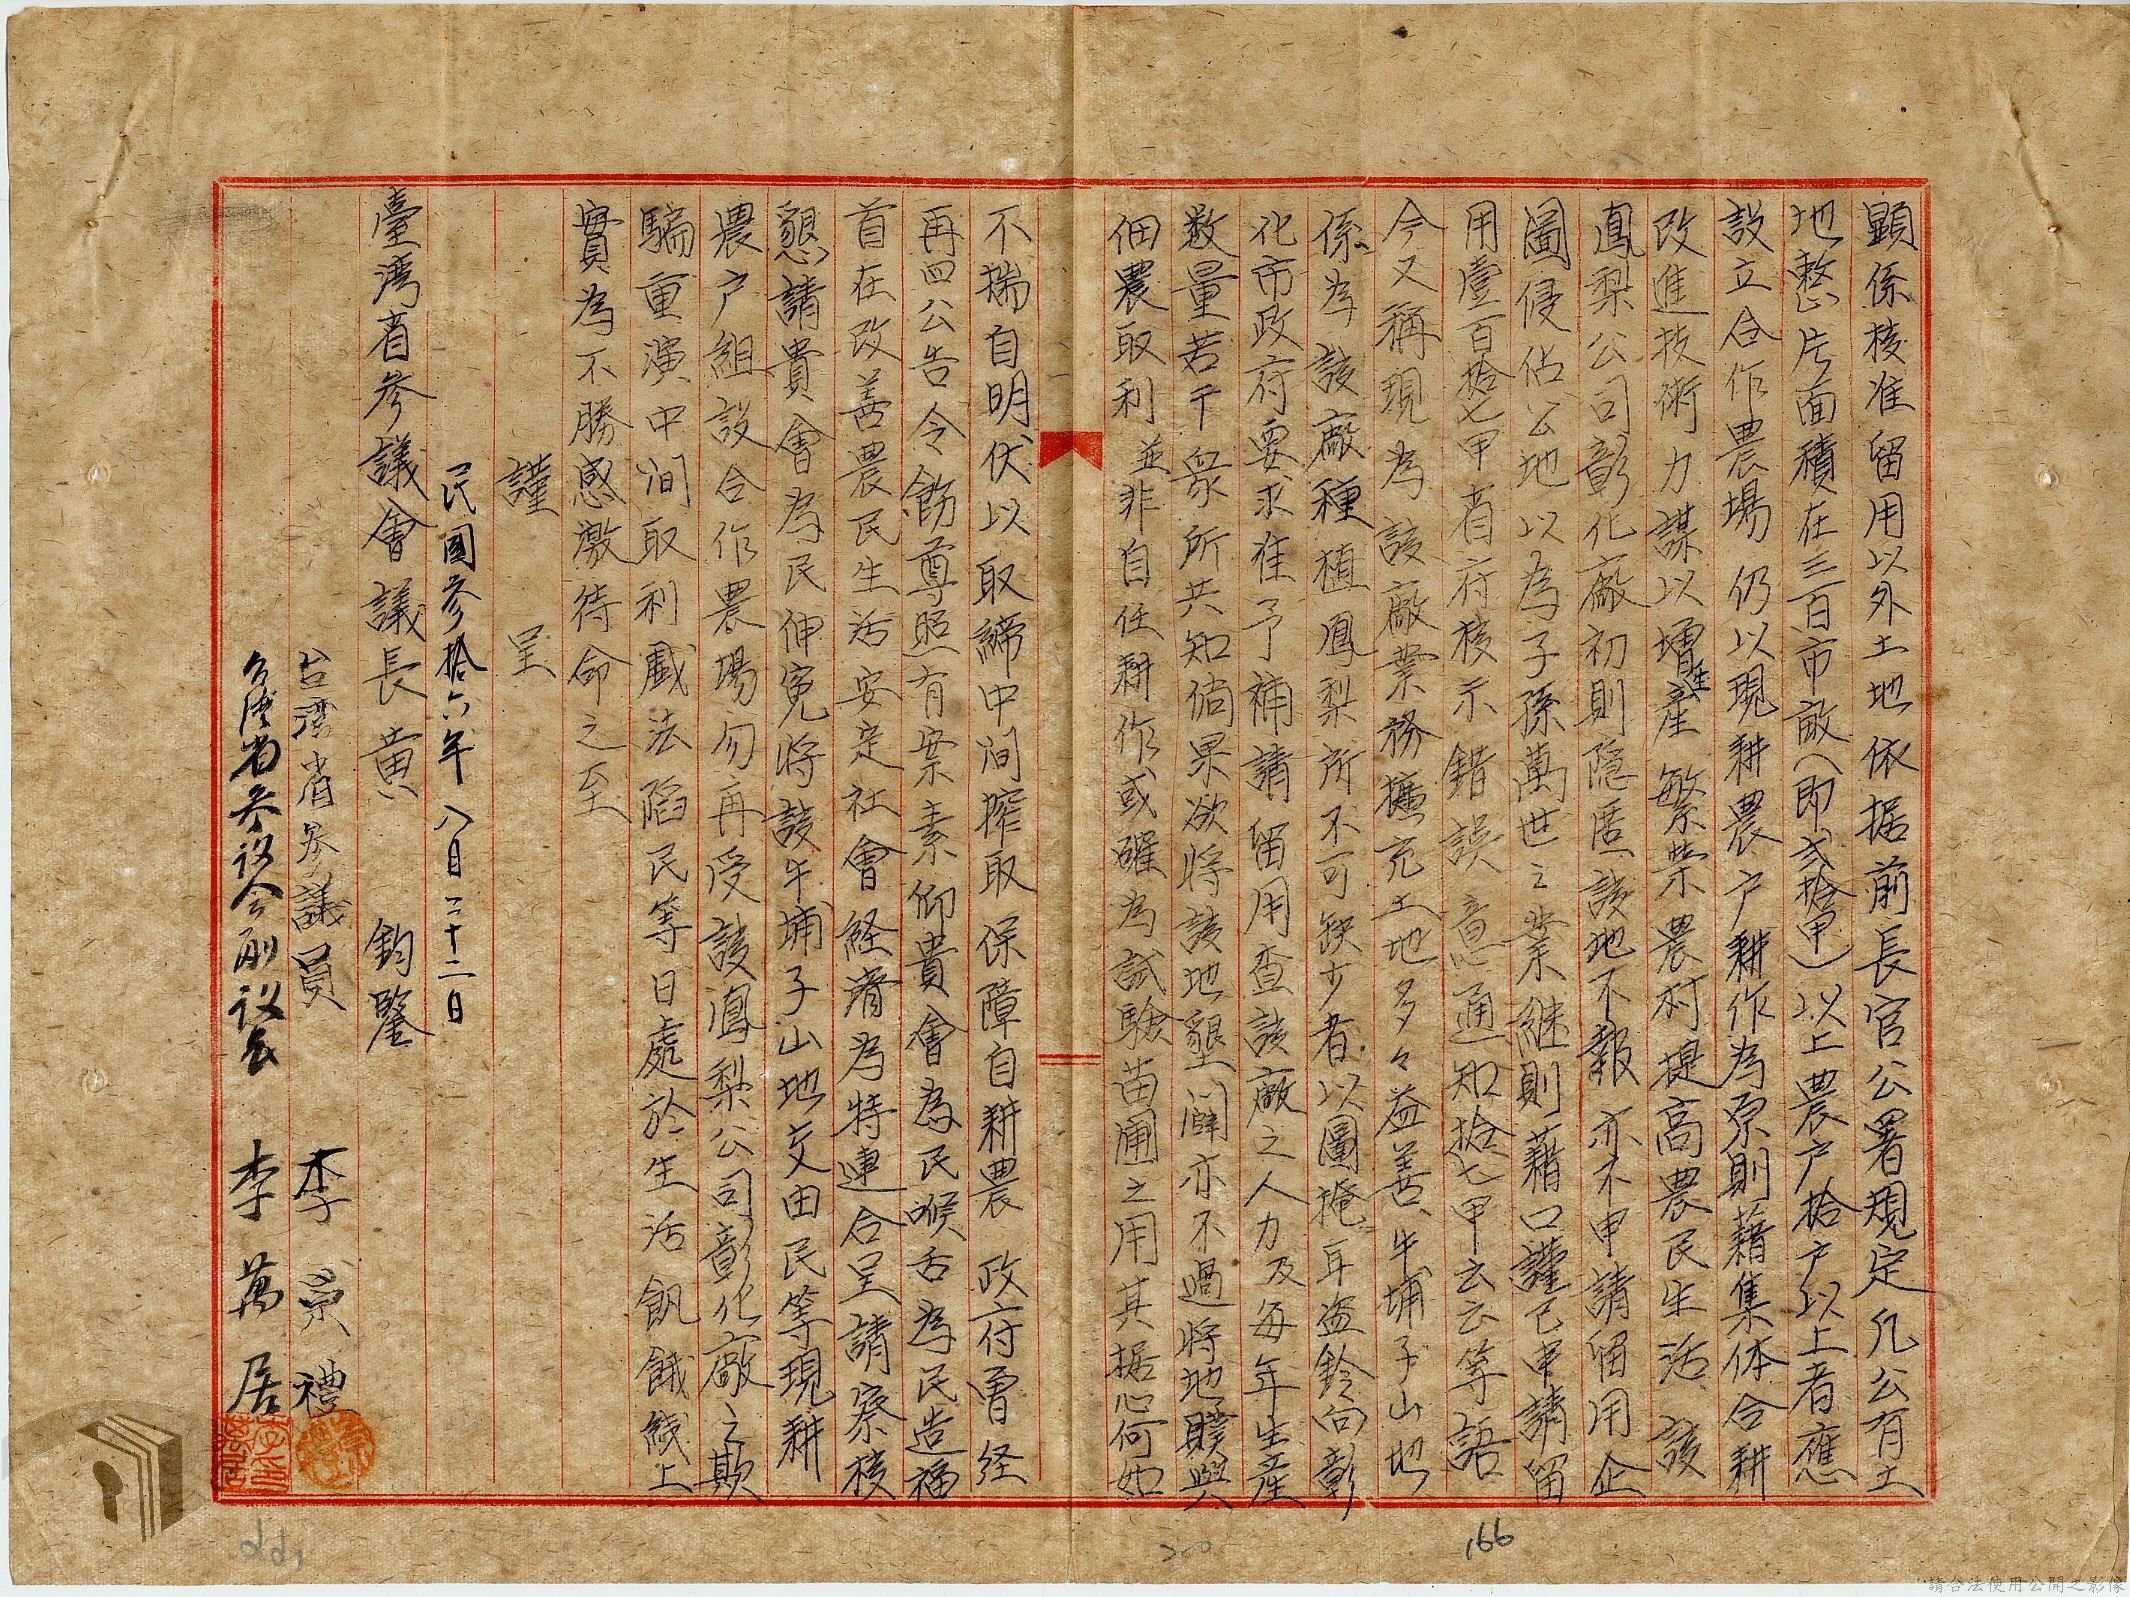 顯係核准留用以外土地依据前長官公署規定凡公有土
地整片面積在三百市畝(即弍拾甲)以上農户拾户以上者應
設立合作農場仍以現耕農户耕作為原則藉集体合耕
改進技術力謀以增產生產繁荣農村提高農民生活該
鳳梨公司彰化廠初則隱匿該地不報亦不申請留用企
圖侵佔公地以為子孫萬世之業継則藉口謹已申請留
用壹百拾七甲者府核示錯誤意通知拾七甲云云等語
今又稱現為該廠業務擴充土地多多々益善、牛埔子山地
係為該廠種植鳳梨所不可缺少者以圖掩耳盗鈴向彰
化市政府要求准予補請留用查該廠之人力及每年生產
数量若干衆所共知倘果欲将該地墾闢亦不過将地贌與
佃農取利並非自任耕作或確為試驗苗圃之用其据心何如
不揣自明伏以取締中间搾取保障自耕農政府曾经
再四公告令飭尊照有案素仰貴會為民喉舌為民造福
首在改善農民生活安定社會経濟為特連合呈請察核
懇請貴會為民伸寃将該牛埔子山地交由民等現耕
農户組設合作農場勿再受該鳳梨公司彰化廠之欺
騙重演中间取利戲法陷民等日處於生活飢餓綫上
實為不勝感激待命之至
謹呈
民國參拾六年八月二十二日
臺湾省參議會議長黄 鈞鑒
台湾省參議員 李崇禮
台湾省参议会副议长 李萬居
166
200